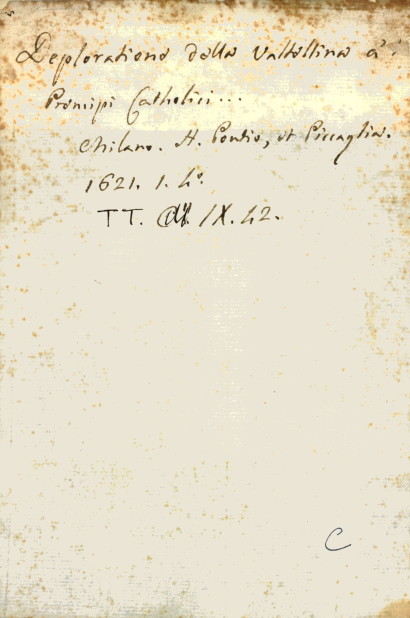 Deploratione della Valtellina a'
Prencipi Catholici...
Milano. H. Pontio, et Piccaglia.
1621. 1. 4°.
TT. IX. 42.
C